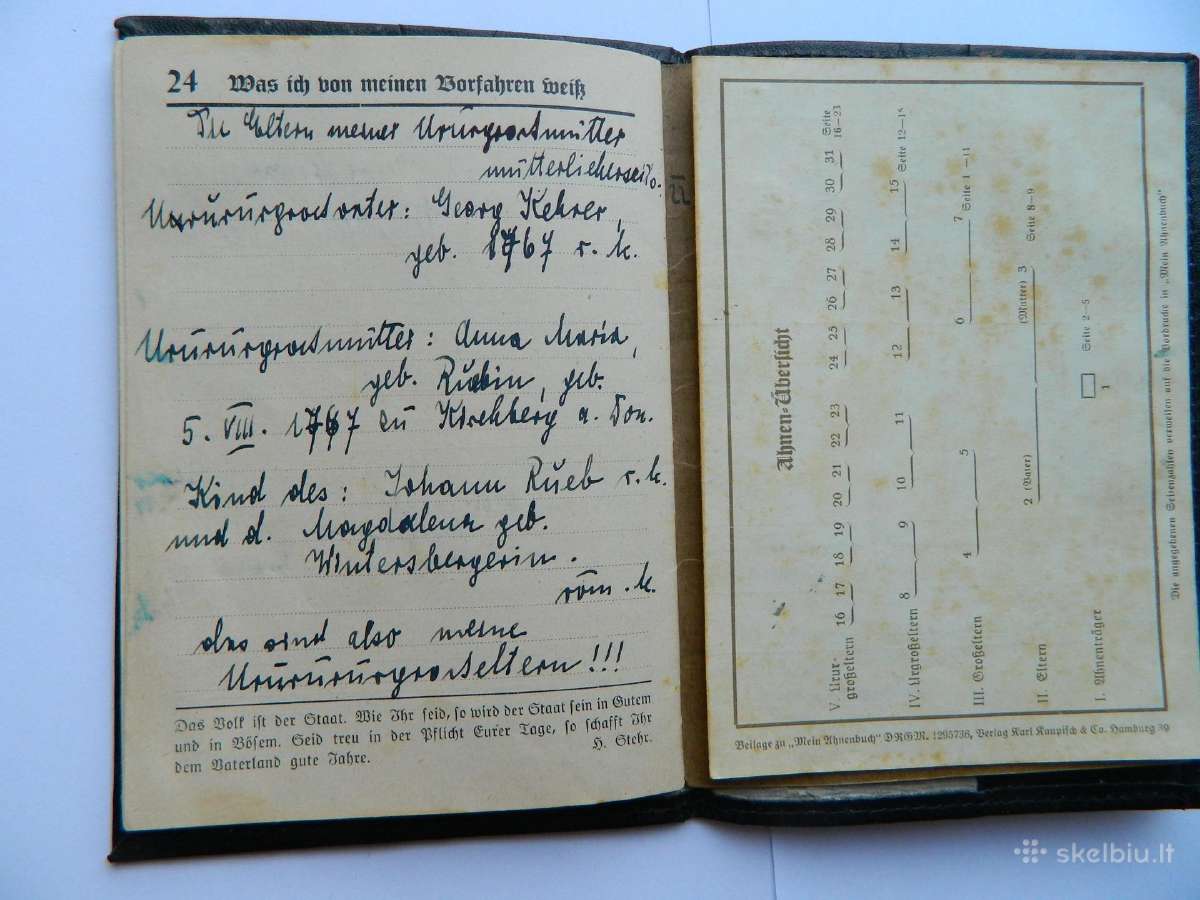 24 Was ich von meinen Vorfahren weiß
Die Eltern meiner Ururgrossmutter
mütterlicherseits.
Urururgrossvater: Georg Kehrer,
geb. 1767 r. k.
Urururgrossmutter: Anna Maria,
geb. Ruebin, geb.
5. VIII. 1767 zu Kirchberg a. Don.
Kind des: Johann Rueb r. k.
und d. Magdalena geb.
Wintersbergerin.
röm. k.
das sind also meine
Ururururgrosseltern!!!
Das Volk ist der Staat. Wie Ihr seid, so wird der Staat sein in Gutem
und in Bösem. Seid treu in der Pflicht Eurer Tage, so schafft Ihr
dem Vaterland gute Jahre.
H. Stehr.
22
Ahnen-Übersicht
V. Urur-
großeltern
16 17 18 19 20 21 22 23 24 25 26 27 28 29 30 31 Seite
16–23
IV. Urgroßeltern 8 9 10 11 12 13 14 15 Seite 12–15
III. Großeltern 4 5 6 7 Seite 1–11
II. Eltern 2 (Vater) (Mutter) 3 Seite 8–9
I. Ahnenträger 1 Seite 2–5
Die angegebenen Seitenzahlen verweisen auf die Vordrucke in „Mein Ahnenbuch“
Beilage zu „Mein Ahnenbuch“ DRGM. 1295736, Verlag Karl Kaupisch & Co. Hamburg 39
skelbiu.lt